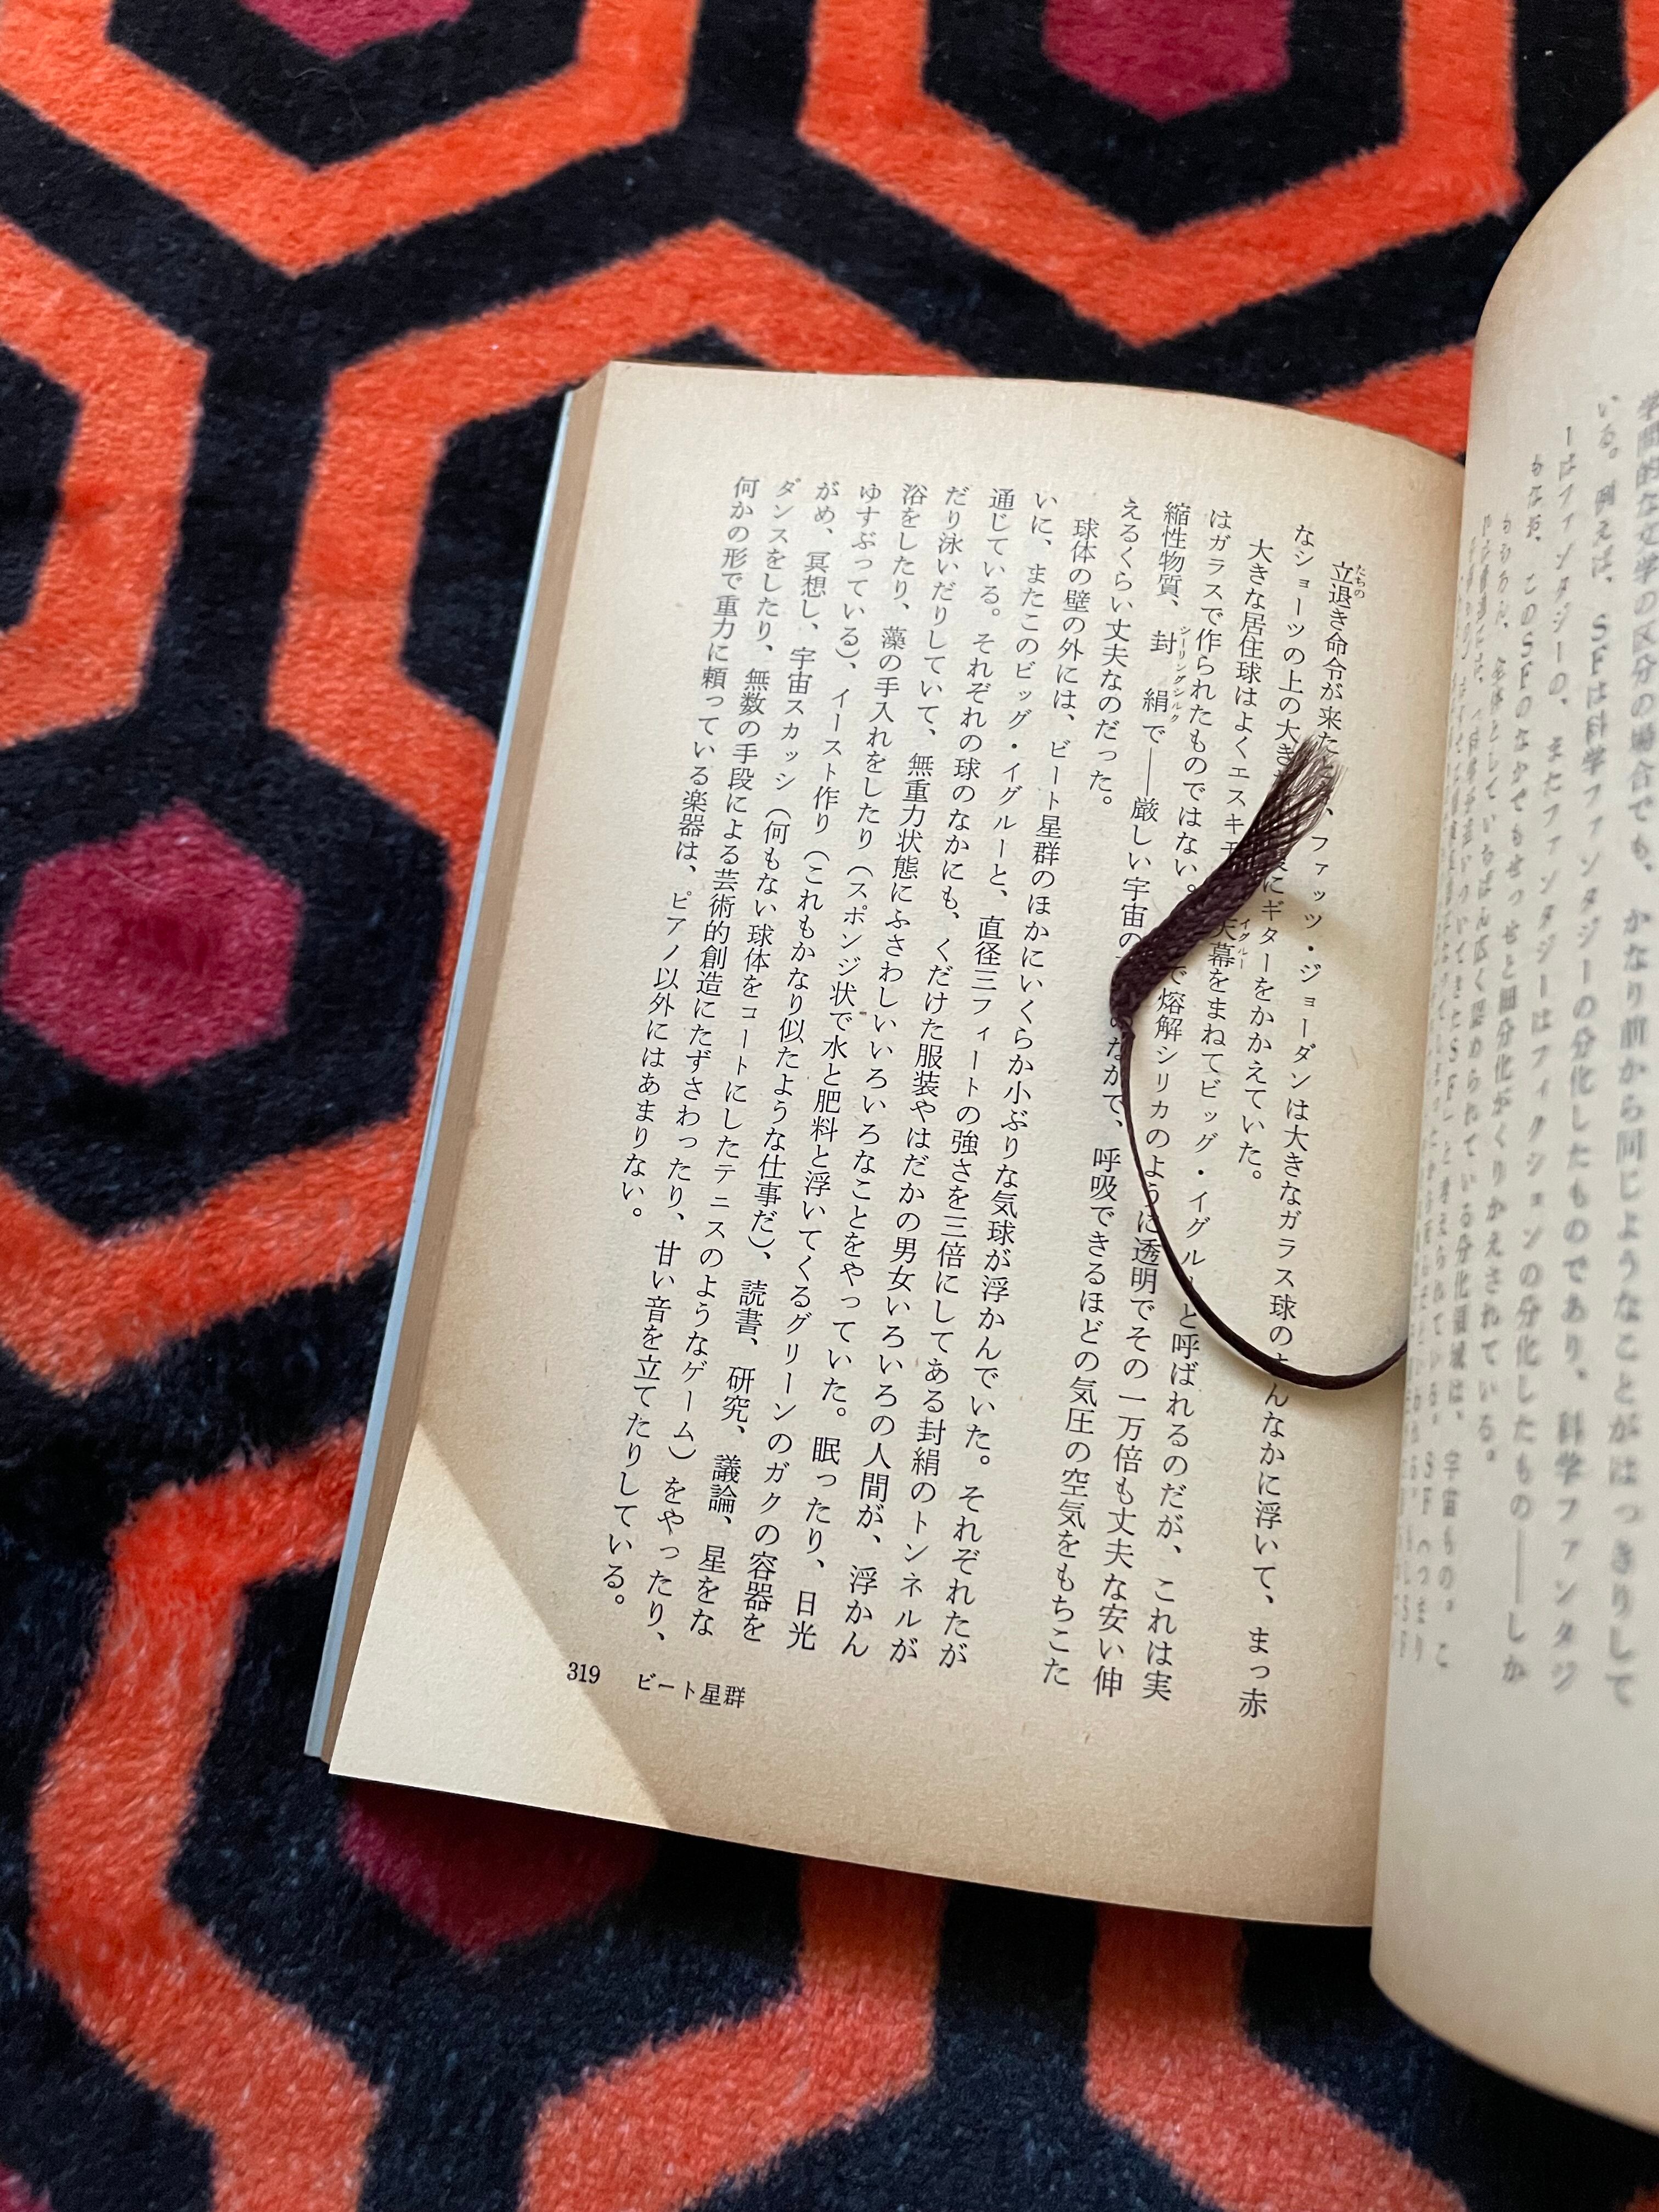 学問的な文学の区分の場合でも、かなり前から同じようなことがはっきりして
いる。例えば、SFは科学ファンタジーの分化したものであり、科学ファンタジ
ーはファンタジーの、またファンタジーはフィクションの分化したもの――しか
もなお、このSFのなかでもせっせと細分化がくりかえされている。
もちろん、全体としていちばん広く認められている分化領域は、宇宙もの。こ
たちの
立退き命令が来た、ファッツ・ジョーダンは大きなガラス球のまんなかに浮いて、まっ赤
なショーツの上の大きにギターをかかえていた。
イグルー
大きな居住球はよくエスキモ天幕をまねてビッグ・イグルーと呼ばれるのだが、これは実
シーリングシルク
はガラスで作られたものではない。で熔解シリカのように透明でその一万倍も丈夫な安い伸
縮性物質、封絹で――厳しい宇宙ののなかで、呼吸できるほどの気圧の空気をもちこた
えるくらい丈夫なのだった。
球体の壁の外には、ビート星群のほかにいくらか小ぶりな気球が浮かんでいた。それぞれたが
いに、またこのビッグ・イグルーと、直径三フィートの強さを三倍にしてある封絹のトンネルが
通じている。それぞれの球のなかにも、くだけた服装やはだかの男女いろいろの人間が、浮かん
だり泳いだりしていて、無重力状態にふさわしいいろいろなことをやっていた。眠ったり、日光
浴をしたり、藻の手入れをしたり（スポンジ状で水と肥料と浮いてくるグリーンのガクの容器を
ゆすぶっている）、イースト作り（これもかなり似たような仕事だ）、読書、研究、議論、星をな
がめ、冥想し、宇宙スカッシ（何もない球体をコートにしたテニスのようなゲーム）をやったり、
ダンスをしたり、無数の手段による芸術的創造にたずさわったり、甘い音を立てたりしている。
何かの形で重力に頼っている楽器は、ピアノ以外にはあまりない。
319 ビート星群